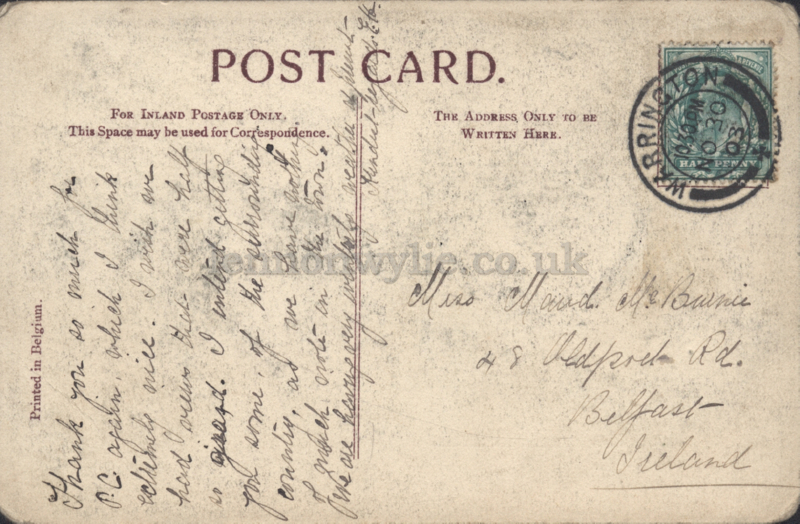 POST CARD.
FOR INLAND POSTAGE ONLY.
This Space may be used for Correspondence.
THE ADDRESS ONLY TO BE
WRITTEN HERE.
WARRINGTON
NO 30
03
HALFPENNY
Printed in Belgium.
Thank you so much for
P.C. again, which I think
extremely nice. I wish we
had views that were half
so good. I intend getting
you some, of the surrounding
country, as we have nothing
of much note in the town.
We are having very wintry weather at present.
Kindest regards E.K.
Miss Maud. McBurnie
48 Oldpark Rd.
Belfast
Ireland
lennonwylie.co.uk